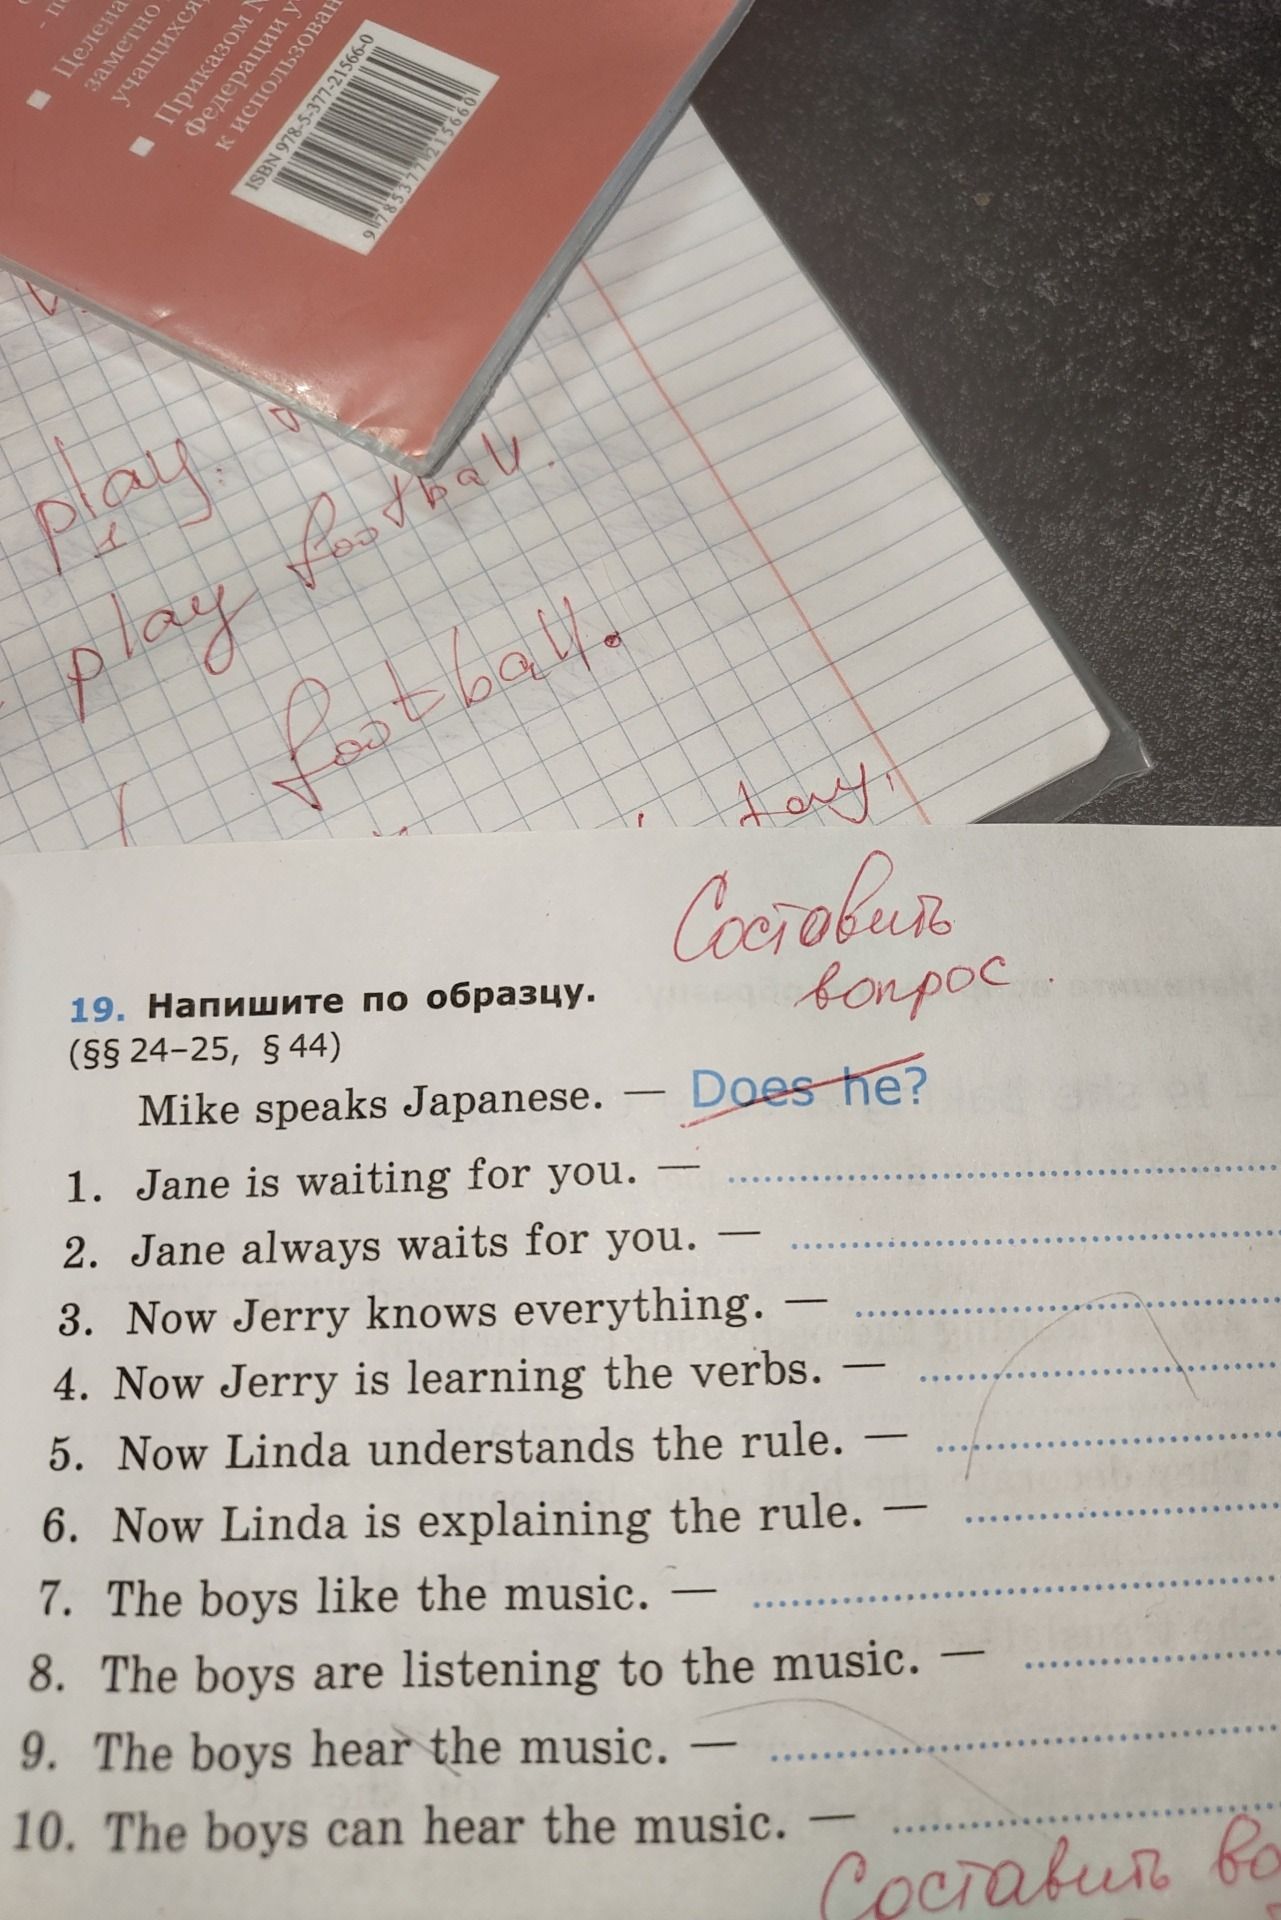 - по
Целена
заметно
учащихся,
Приказом №
Федерации у
к использован
ISBN 978-5-377-21566-0
9 785377 215660
play.
play football.
football.
Составить
вопрос.
19. Напишите по образцу.
(§§ 24–25, § 44)
Mike speaks Japanese. — Does he?
1. Jane is waiting for you. —
2. Jane always waits for you. —
3. Now Jerry knows everything. —
4. Now Jerry is learning the verbs. —
5. Now Linda understands the rule. —
6. Now Linda is explaining the rule. —
7. The boys like the music. —
8. The boys are listening to the music. —
9. The boys hear the music. —
10. The boys can hear the music. —
Составить во